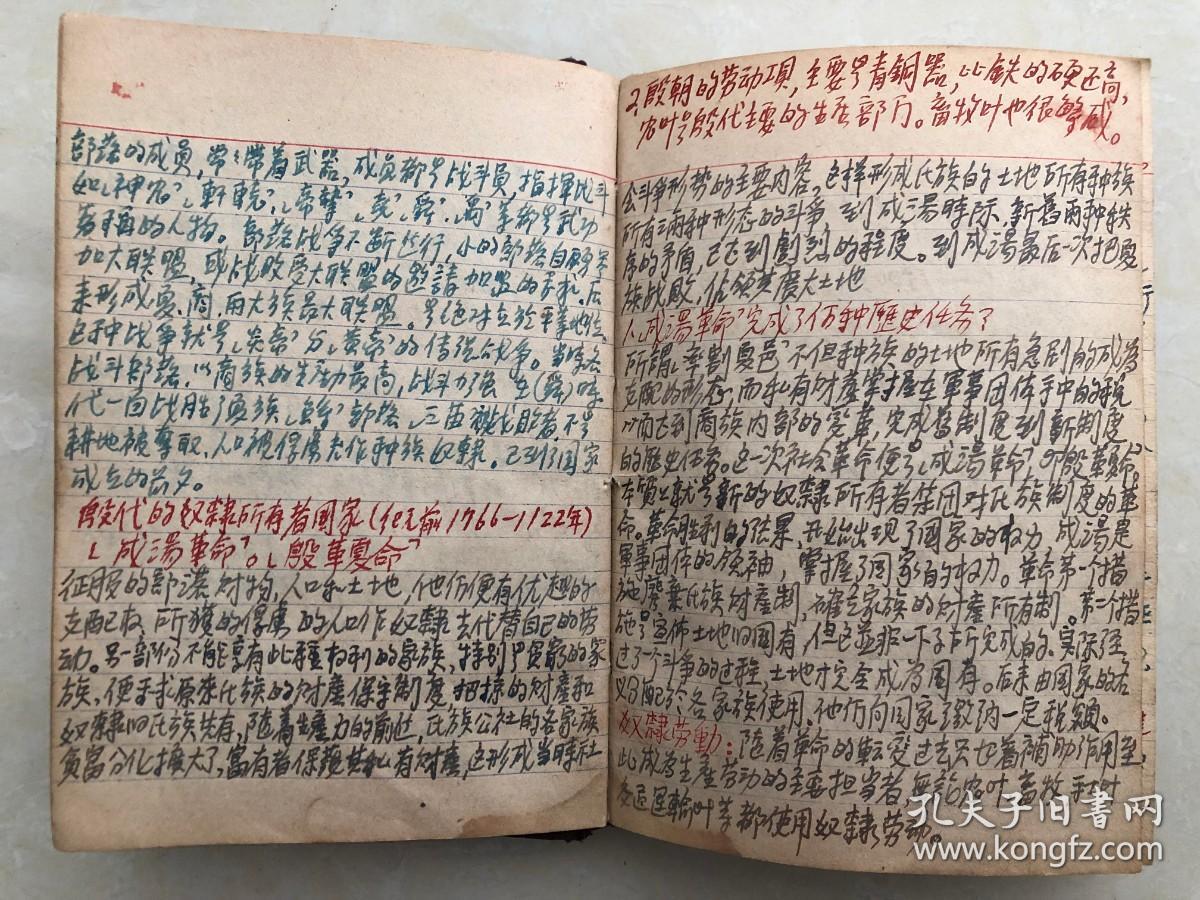 部落的成员,常々带着武器,成员都是战斗员,指揮战斗
如「神农」「軒轅」「帝嚳」「尭」「舜」「禹」等都是武功
著称的人物。部落战争不断进行,小的部落自愿参
加大联盟,或战敗受大联盟的邀請加盟的
来形成夏、商,兩大族最大联盟。是绝对立於平等地位。
这种战争就是「炎帝」分「黄帝」的传说战争。当时各
战斗部落,以商族的生动最高,战斗力强
代一向战胜了夏族 部落「三苗 战敗者,不是
耕地被奪取,人口被俘虜去作种族奴隸。已到了国家
成立的前夕。
殷代的奴隸所有者国家(纪元前1766—1122年)
「成湯革命」。「殷革夏命」
征服的部落财物,人口和土地,他们便有优越的
支配权 所獲的俘虜的人口作奴隸去代替自己的劳
动。另一部份不能享有此種权利的家族,特别是貧窮的家
族,便要求原来氏族的财產保守制度,把掠的财產和
奴隸归氏族共有,随着生產力的前进,氏族公社的各家族
貧富分化擴大了,富有者保護其私有财產,这形成当時社
2、殷朝的劳动工項,主要是青銅器,比鉄的硬度高,
农叶是殷代主要的生産部门。畜牧叶也很繁盛。
会斗争形势的主要内容,这样形成氏族的土地所有种族
所有之兩种形态的斗争 到成湯時际,新舊兩种秩
序的矛盾,已达到劇烈的程度。到成湯最后一次把夏
族战敗,佔领其廣大土地
1、「成湯革命」完成了何种歷史任务?
所謂「率割夏邑」不但种族的土地所有急剧的成為
支配的形态,而私有财產掌握在軍事团体手中的
以而达到商族内部的变革,完成舊制度到新制度
的歷史任务。这一次社会革命便是「成湯革命」即「殷革夏命」。
本質上就是新的奴隸所有者集团对氏族制度的革
命。革命胜利的结果,开始出現了国家的权力,成湯是
軍事团体的领袖,掌握了国家的权力。革命第一个措
施是廢棄氏族财產制,確立家族的财產所有制。第二个措
施是宣佈土地归國有,但这並非一下子所完成的。实际经
过了个斗争的过程,土地才完全成為国有。后来由国家的名
义分配於各家族使用。他们向国家繳纳一定税額。
奴隸劳動:随着革命的転变过去只也着補助作用至
此成為生產劳动的主要担当者,無論农叶畜牧和
交通運輸叶等都使用奴隸劳动。
孔夫子旧書网
www.kongfz.com